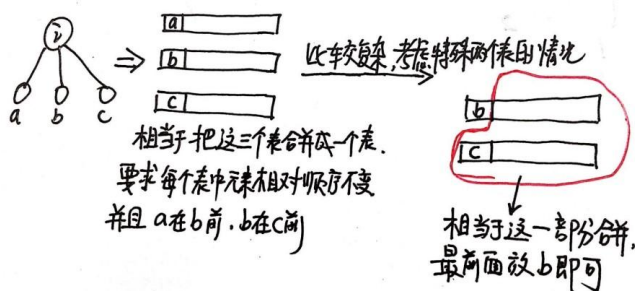 i
a
b
c
a
b
c
比较复杂,考虑特殊两个表的情况
相当于把这三个表合并成一个表.
要求每个表中元素相对顺序不变
并且 a在b前,b在c前
b
c
相当于这一部分合并,
最前面放b即可